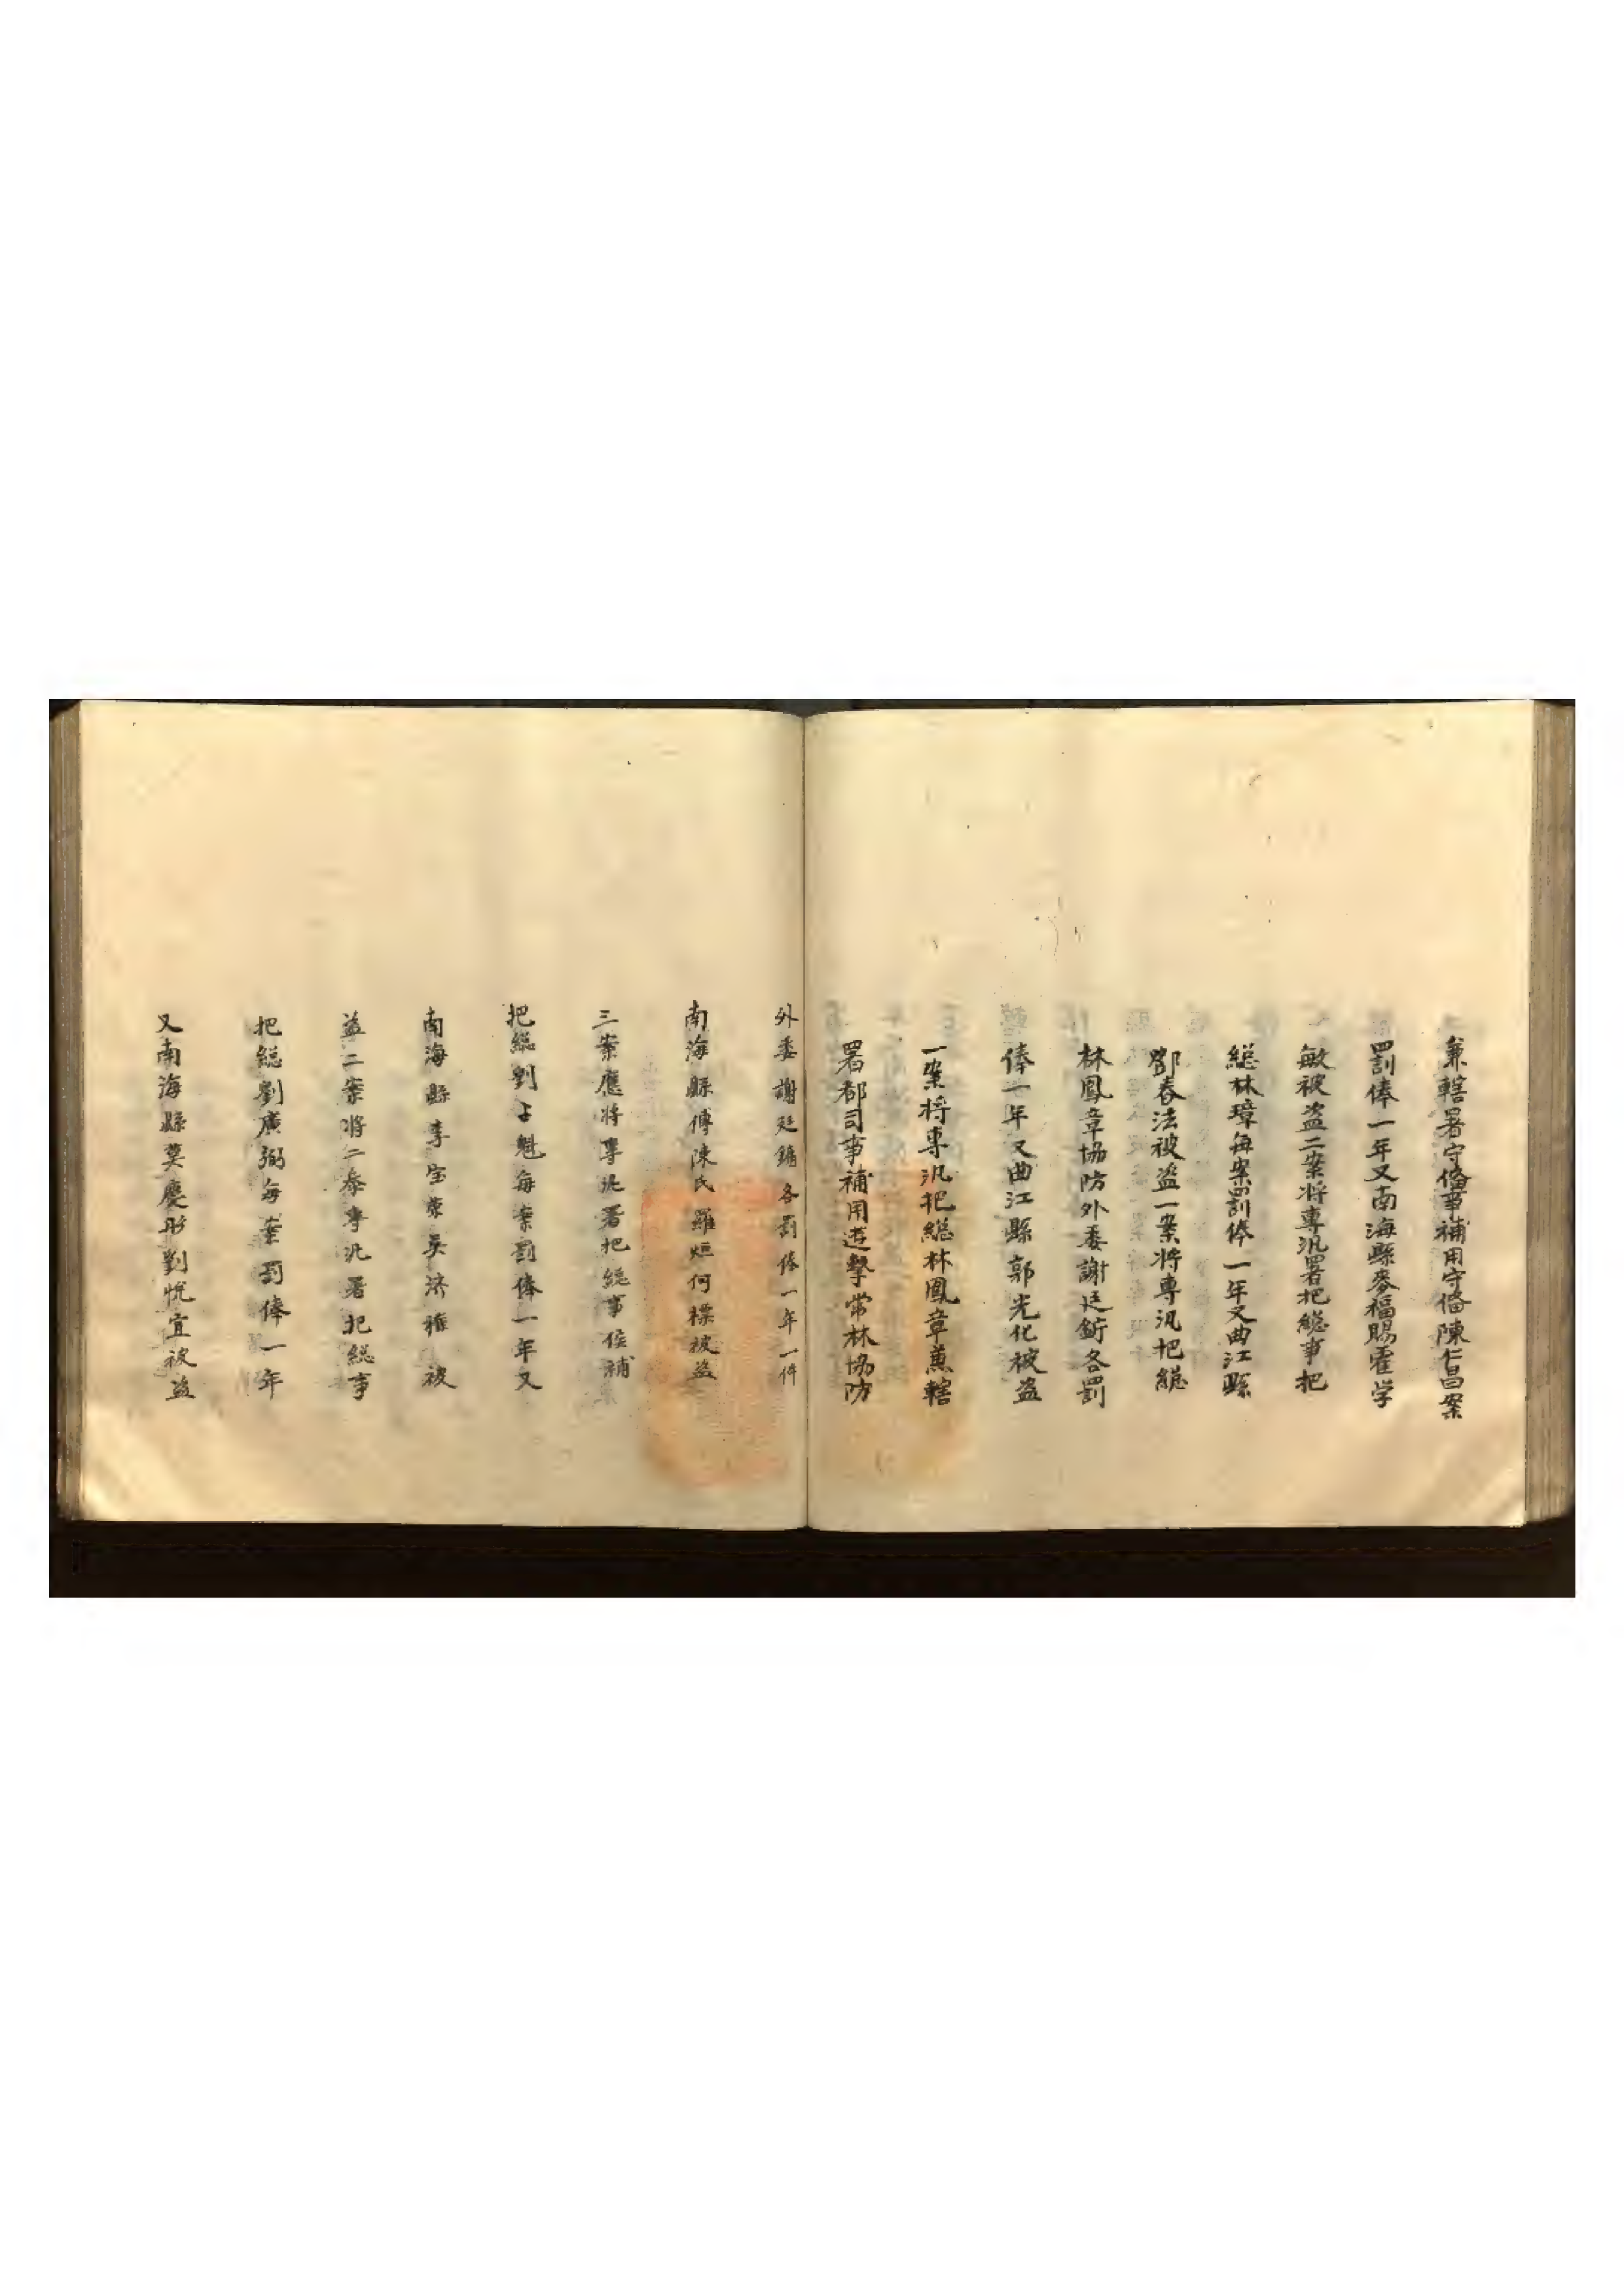 兼轄署守俻事補用守俻陳仁昌案
四罰俸一年又南海縣麥福賜霍学
敏被盗二案将專汛署把總事把
總林璋每案罰俸一年又曲江縣
鄧春法被盗一案将專汛把總
林鳳章協防外委謝廷 各罰
俸一年又曲江縣郭光化被盗
一案将專汛把總林鳳章兼轄
署都司事補用遊擊常林協防
外委謝廷 各罰俸一年一件
南海縣傅陳氏羅烜何標被盗
三案應将專汛署把總事候補
把總劉 魁每案罰俸一年又
南海縣李宝 吳濟 被
盗二案将二 專汛署把總事
把總劉廣弼每案罰俸一年
又南海縣莫慶彤劉悅宜被盗